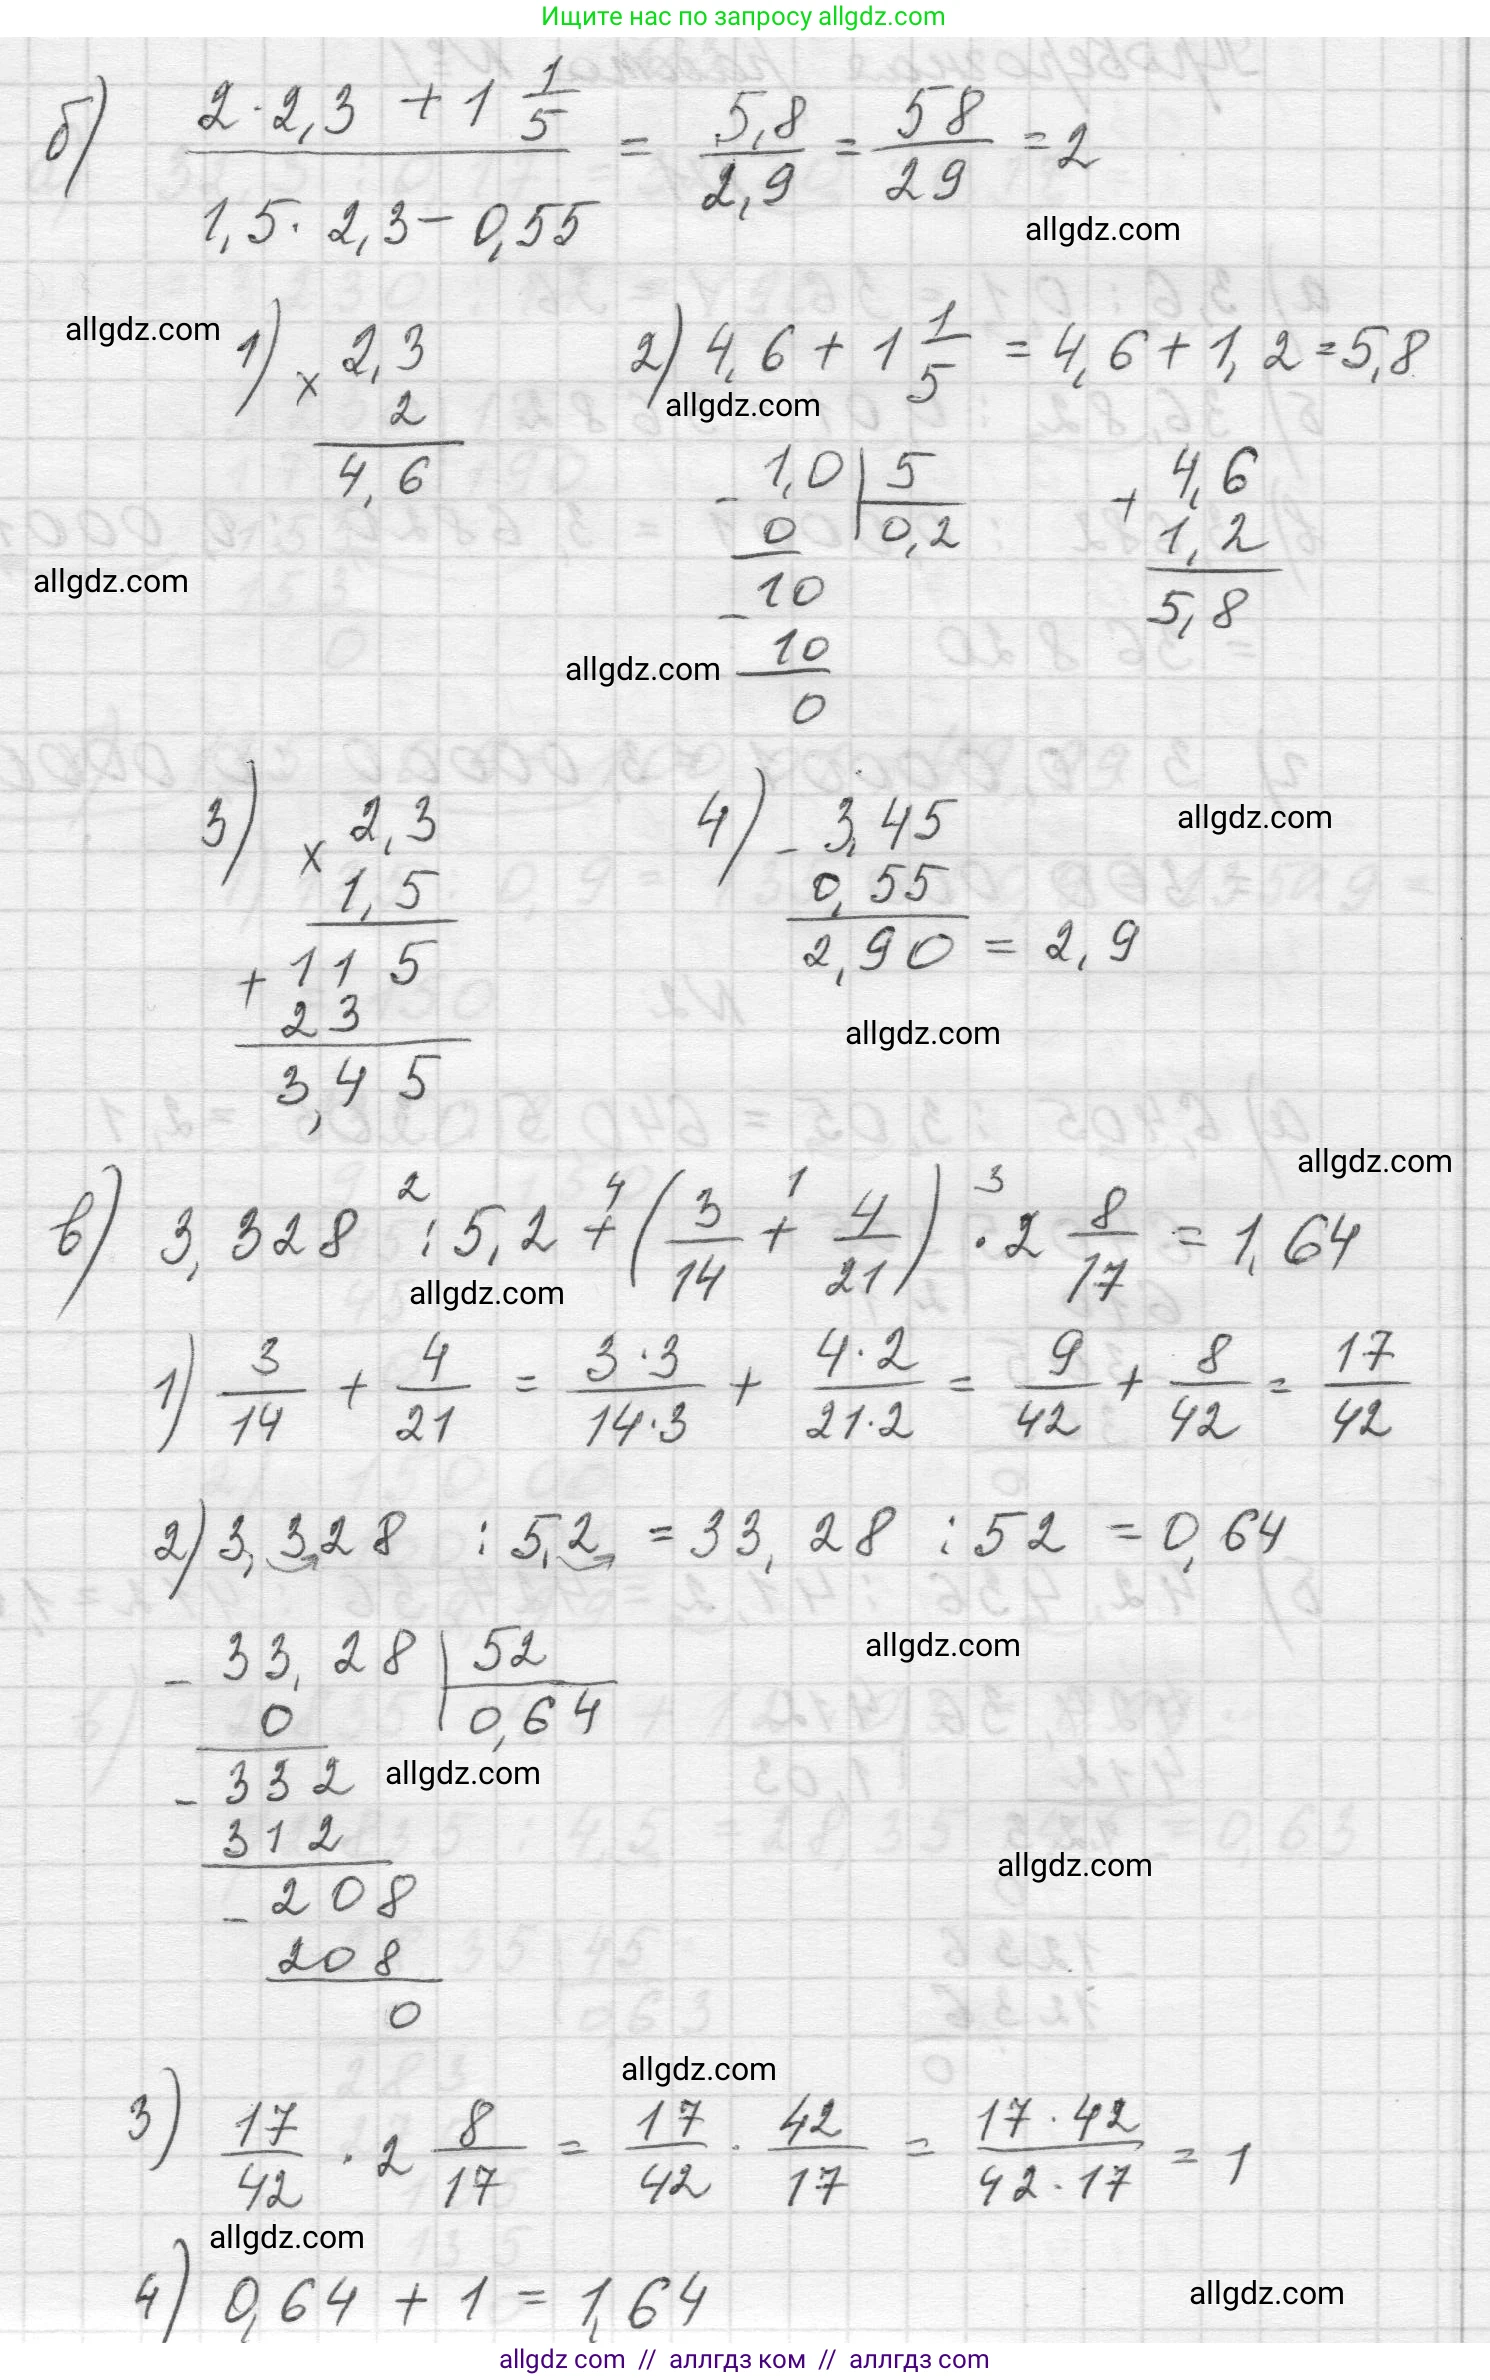 Ищите нас по запросу allgdz.com
б) (2 · 2,3 + 1 1/5) / (1,5 · 2,3 − 0,55) = 5,8/2,9 = 58/29 = 2
allgdz.com
allgdz.com
1) × 2,3
2
4,6
2) 4,6 + 1 1/5 = 4,6 + 1,2 = 5,8
allgdz.com
− 1,0 | 5
0 | 0,2
− 10
10
0
+ 4,6
1,2
5,8
allgdz.com
allgdz.com
3) × 2,3
1,5
+ 115
23
3,45
4) − 3,45
0,55
2,90 = 2,9
allgdz.com
allgdz.com
allgdz.com
2 4 1 3
в) 3,328 : 5,2 + (3/14 + 4/21) · 2 8/17 = 1,64
allgdz.com
1) 3/14 + 4/21 = 3·3/14·3 + 4·2/21·2 = 9/42 + 8/42 = 17/42
2) 3,328 : 5,2 = 33,28 : 52 = 0,64
− 33,28 | 52
0 | 0,64
− 332
312
− 208
208
0
allgdz.com
allgdz.com
allgdz.com
allgdz.com
3) 17/42 · 2 8/17 = 17/42 · 42/17 = 17·42/42·17 = 1
allgdz.com
4) 0,64 + 1 = 1,64
allgdz.com
allgdz.com // аллгдз ком // аллгдз com